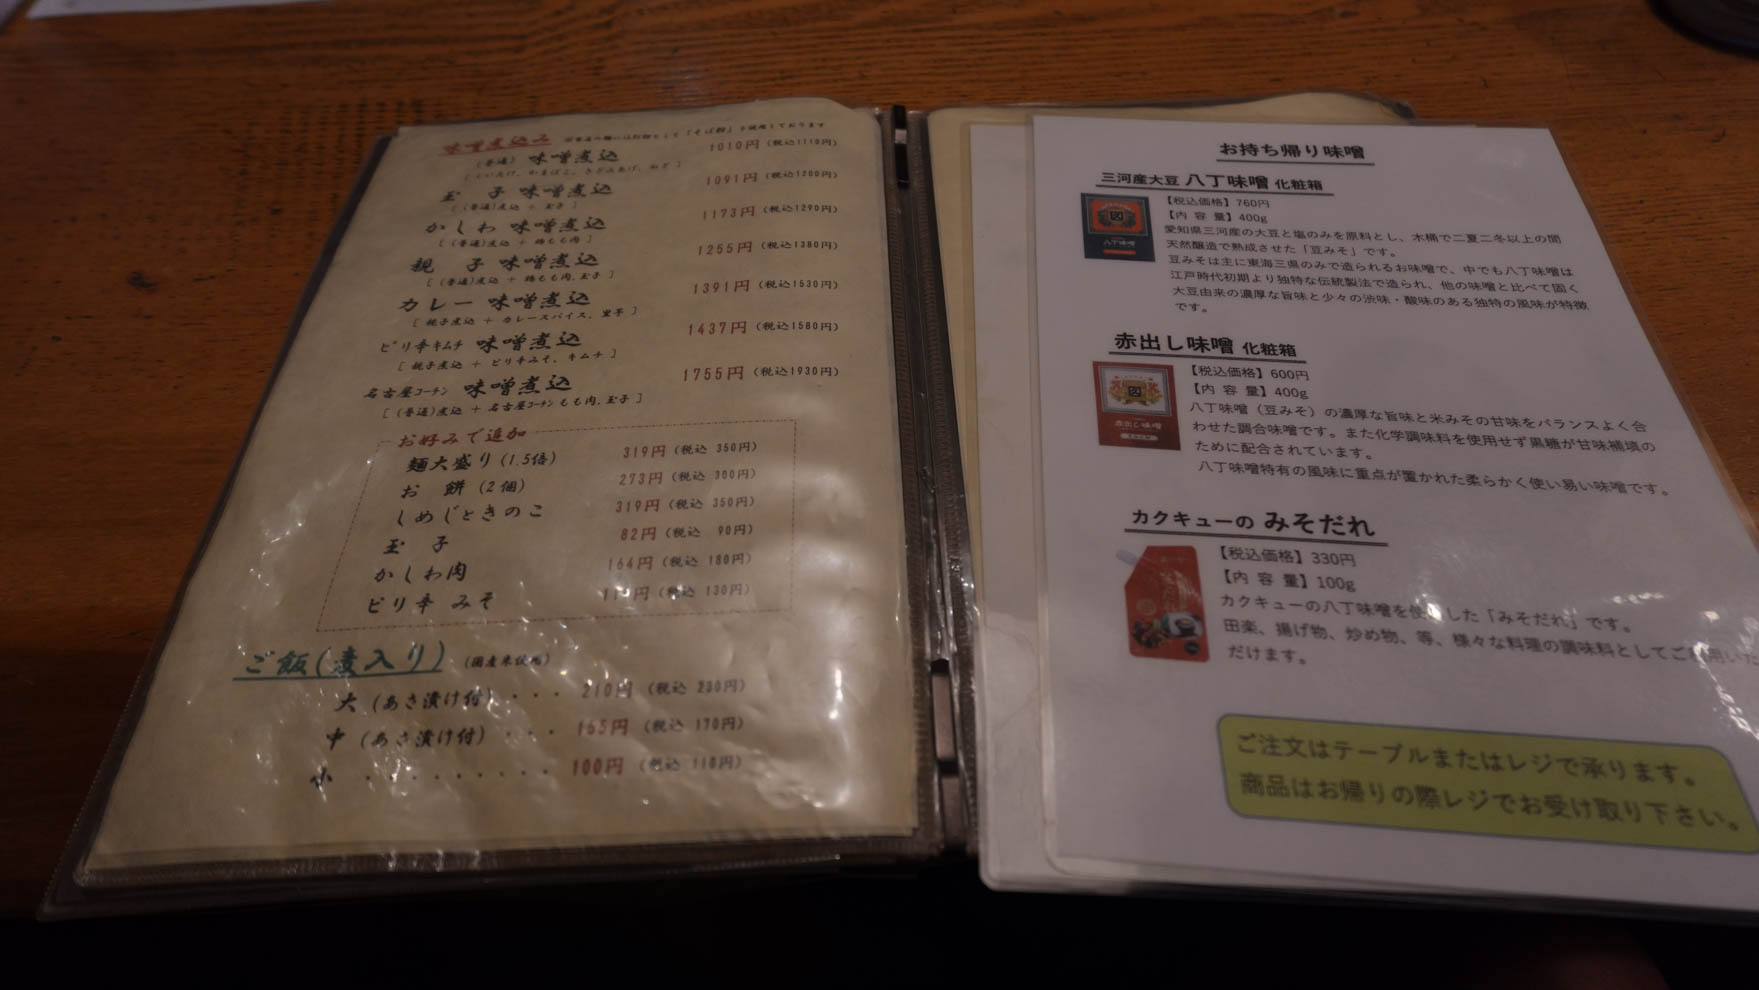 味噌煮込み
(普通) 味噌煮込 1010円(税込1110円)
[しいたけ、かまぼこ、きざみあげ、ねぎ]
玉 子 味噌煮込 1091円(税込1200円)
[(普通)煮込 + 玉子]
かしわ 味噌煮込 1173円(税込1290円)
[(普通)煮込 + 鶏もも肉]
親 子 味噌煮込 1255円(税込1380円)
[(普通)煮込 + 鶏もも肉、玉子]
カレー 味噌煮込 1391円(税込1530円)
[親子煮込 + カレースパイス、里芋]
ピリ辛キムチ 味噌煮込 1437円(税込1580円)
[親子煮込 + ピリ辛みそ、キムチ]
名古屋コーチン 味噌煮込 1755円(税込1930円)
[(普通)煮込 + 名古屋コーチンもも肉、玉子]
お好みで追加
麺大盛り(1.5倍) 319円(税込 350円)
お 餅(2個) 273円(税込 300円)
しめじときのこ 319円(税込 350円)
玉 子 82円(税込 90円)
かしわ肉 164円(税込 180円)
ピリ辛 みそ (税込 130円)
ご飯(煮入り)(国産米使用)
大(あさ漬け付)・・・210円(税込 230円)
中(あさ漬け付)・・・155円(税込 170円)
小 ・・・・・・・・・・100円(税込 110円)
お持ち帰り味噌
三河産大豆 八丁味噌 化粧箱
八丁味噌
【税込価格】760円
【内 容 量】400g
愛知県三河産の大豆と塩のみを原料とし、木桶で二夏二冬以上の間
天然醸造で熟成させた「豆みそ」です。
豆みそは主に東海三県のみで造られるお味噌で、中でも八丁味噌は
江戸時代初期より独特な伝統製法で造られ、他の味噌と比べて固く
大豆由来の濃厚な旨味と少々の渋味・酸味のある独特の風味が特徴
です。
赤出し味噌 化粧箱
赤出し味噌
【税込価格】600円
【内 容 量】400g
八丁味噌(豆みそ)の濃厚な旨味と米みその甘味をバランスよく合
わせた調合味噌です。また化学調味料を使用せず黒糖が甘味補填の
ために配合されています。
八丁味噌特有の風味に重点が置かれた柔らかく使い易い味噌です。
カクキューの みそだれ
【税込価格】330円
【内 容 量】100g
カクキューの八丁味噌を使用した「みそだれ」です。
田楽、揚げ物、炒め物、等、様々な料理の調味料としてご利用いた
だけます。
ご注文はテーブルまたはレジで承ります。
商品はお帰りの際レジでお受け取り下さい。